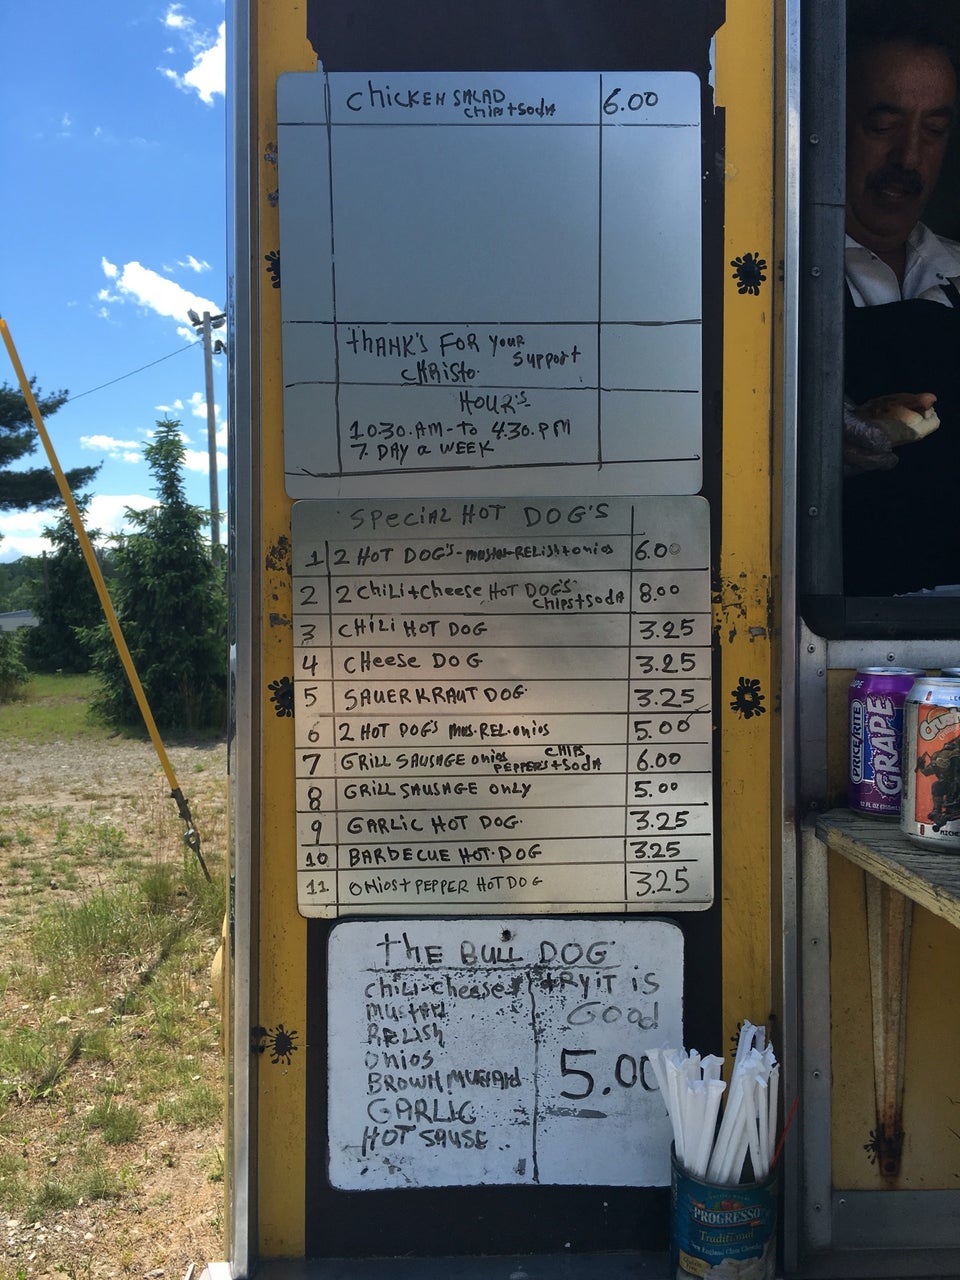 CHICKEN SALAD 6.00
CHIPS+SODA
THANK'S FOR YOUR
SUPPORT
CHRISTO.
HOUR'S
10.30.AM-TO 4.30.PM
7. DAY a WEEK
SPECIAL HOT DOG'S
1 2 HOT DOG'S- RELISH+ONIOS 6.00
2 2 CHILI+CHEESE HOT DOG'S 8.00
CHIPS+SODA
3 CHILI HOT DOG 3.25
4 CHEESE DOG 3.25
5 SAUERKRAUT DOG 3.25
6 2 HOT DOG'S MUS.REL.ONIOS 5.00
7 GRILL SAUSAGE ONIOS CHIPS 6.00
PEPPERS+SODA
8 GRILL SAUSAGE ONLY 5.00
9 GARLIC HOT DOG. 3.25
10 BARBECUE HOT.DOG 3.25
11 ONIOS+PEPPER HOT DOG 3.25
THE BULL DOG
CHILI-CHEESE TRY IT IS
MUSTARD GOOD
RELISH
ONIOS 5.00
BROWN MUSTARD
GARLIC
HOT SAUSE
PRICE/RITE
GRAPE
12 FL OZ (355mL)
CRUSH
PROGRESSO
Traditional
New England Clam Chowder